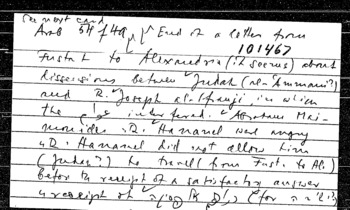 See next card
Arab 54 f 49 End of a letter from
101467
Fustat to Alexandria (it seems) about
dissensions between Judah (al-Ammani?)
and R. Joseph al-
in which
the
interfered. Abraham Mai-
monides. R. Hananel was angry
R. Hananel did not allow him
(Judah?) to travel (from Fust. to Al.)
before the receipt of a satisfactory answer
receipt of
(for